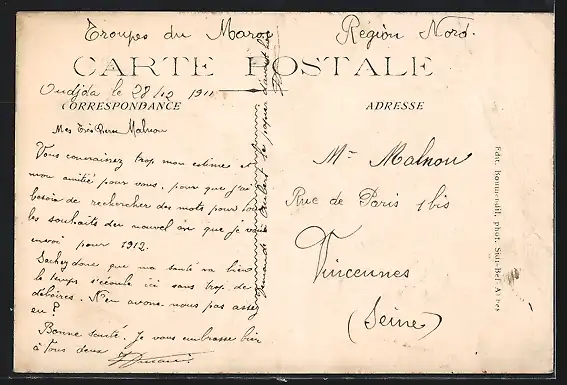 Troupes du Maroc Région Nord.
CARTE POSTALE
Oudjda le 28/12 1911
CORRESPONDANCE
ADRESSE
Mes Très Chers Malnou
Vous connaissez trop mon estime et
mon amitié pour vous, pour que j'ai
besoin de rechercher des mots pour
les souhaits du nouvel an que je vous
envoi pour 1912.
Sachez donc que ma santé va bien
le temps s'écoule ici sans trop de
déboires. N'en avons nous pas assez
eu?
Bonne santé. Je vous embrasse bien
à tous deux
Mr Malnou
Rue de Paris 1 bis
Vincennes
(Seine)
Edit. Boumendil, phot. Sidi-Bel-Abbès